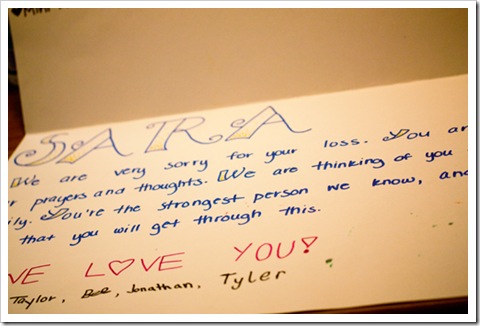 SARA
We are very sorry for your loss. You ar
r prayers and thoughts. We are thinking of you
ily. You're the strongest person we know, and
that you will get through this.
VE LOVE YOU!
Taylor, Jonathan, Tyler